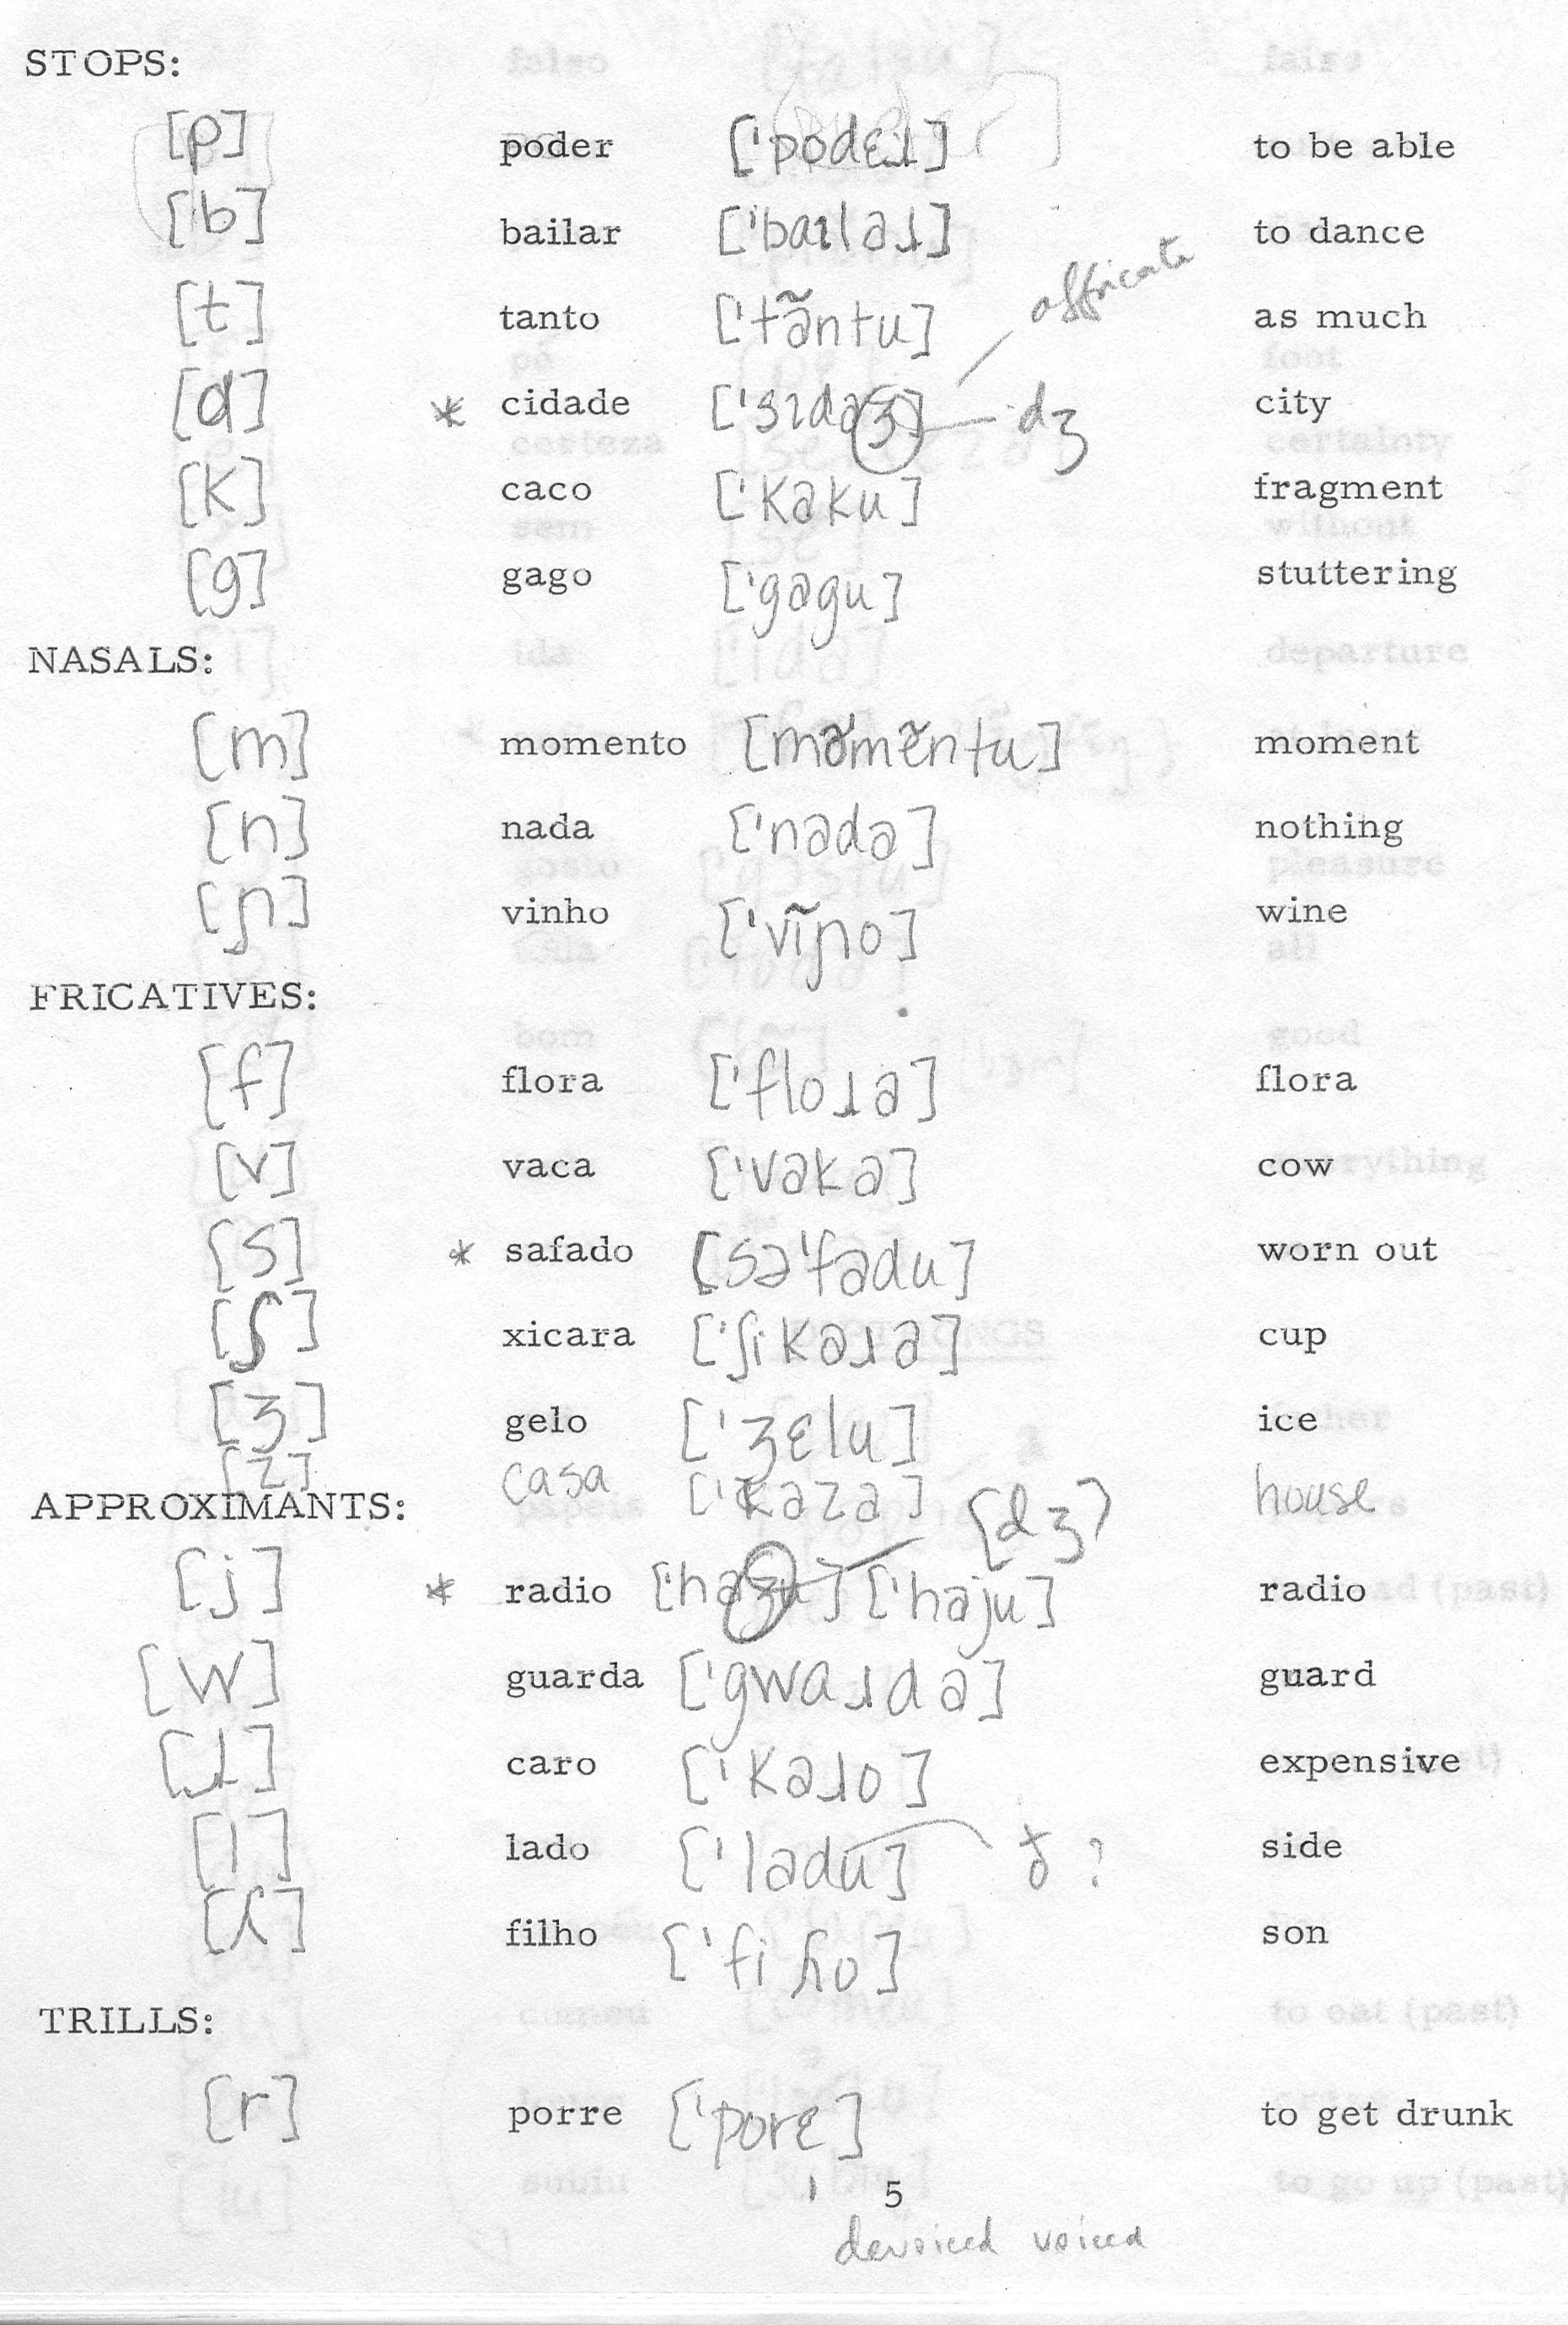 STOPS:
[p] poder ['podɛɹ] to be able
[b] bailar ['baɪləɹ] to dance
affricate
[t] tanto ['tə̃ntu] as much
[d] * cidade ['sɪdaʒ] — dʒ city
[k] caco ['kəku] fragment
[g] gago ['gəgu] stuttering
NASALS:
[m] momento [mə̃mẽntu] moment
[n] nada ['nədə] nothing
[ɲ] vinho ['vĩɲo] wine
FRICATIVES:
[f] flora ['floɹə] flora
[v] vaca ['vəkə] cow
[s] * safado [sə'fədu] worn out
[ʃ] xicara ['ʃikəɹə] cup
[ʒ] gelo ['ʒɛlu] ice
[z] casa ['kəzə] house
APPROXIMANTS: [dʒ]
[j] * radio ['haʒu] ['həju] radio
[w] guarda ['gwaɹdə] guard
[ɹ] caro ['kəɹo] expensive
[l] lado ['lədu] ð ? side
[ʎ] filho ['fiʎo] son
TRILLS:
[r] porre ['porɛ] to get drunk
5
devoiced voiced